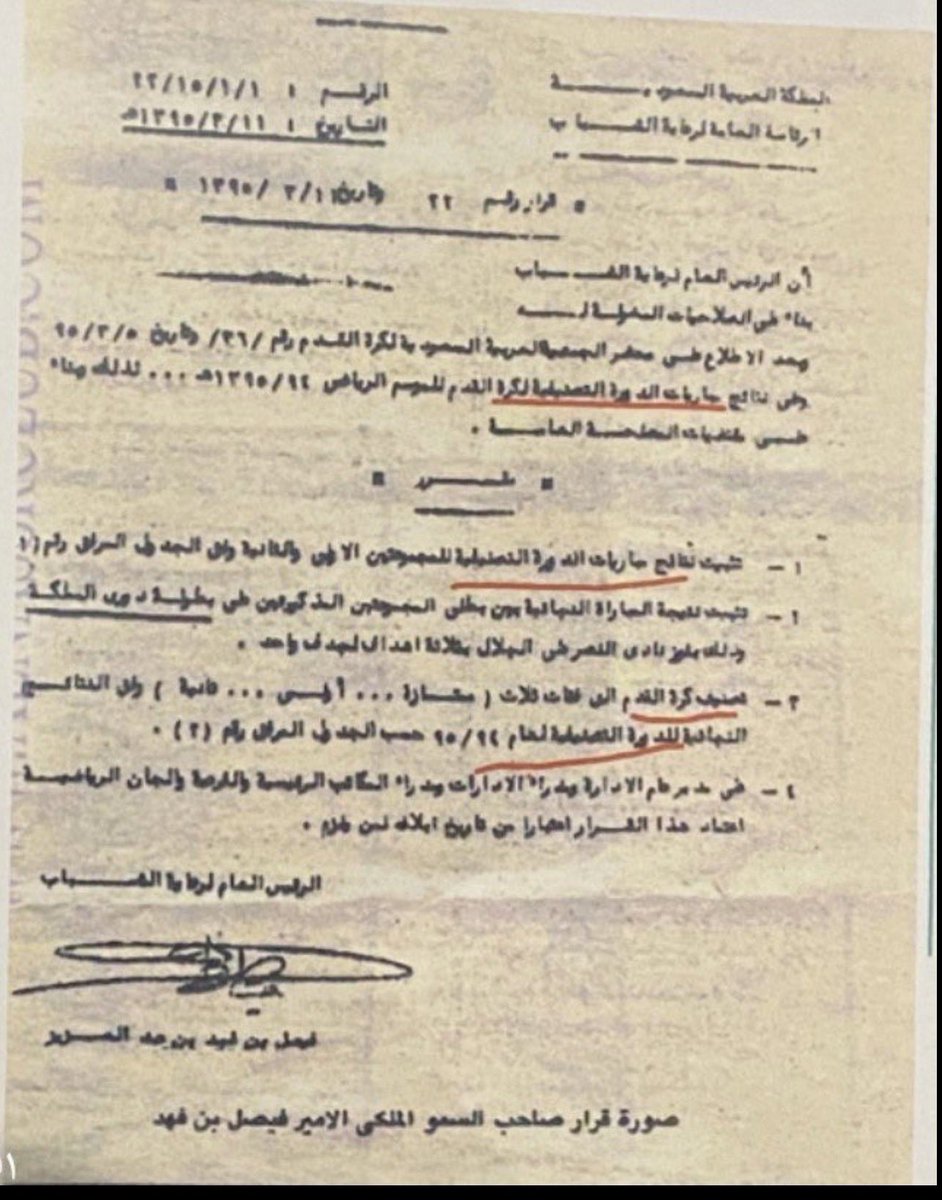 المملكة العربية السعوديـــــــة
الرئاسة العامة لرعاية الشــــباب
الرقـــم : ٢٢/١٥/١/١
التـــاريخ : ١٣٩٥/٣/١١هـ
" قرار رقم ٢٢ وتاريخ ١٣٩٥/٣/١١ "
أن الرئيس العام لرعاية الشــــباب
بناء على الصلاحيات المخولة لـــه
وبعد الاطلاع على محضر الجمعية العربية السعودية لكرة القدم رقم /٣٦/ وتاريخ ٩٥/٣/٥
وعلى نتائج مباريات الدورة التصنيفية لكرة القدم للموسم الرياضي ١٣٩٥/٩٤هـ ... لذلك وبناء
على مقتضيات المصلحــة العامــة .
" يقـــــرر "
١ – تثبيت نتائج مباريات الدورة التصنيفية للمجموعتين الاولى والثانية وفق الجدول المرافق رقم (
٢ – تثبيت نتيجة المباراة النهائية بين بطلي المجموعتين المذكورتين على بطولة دورى المملكة
وذلك بفوز نادى النصر على الهلال بثلاثة اهداف لهدف واحد .
٣ – تصنيف كرة القدم الى فئات ثلاث ( ممتــازة ... أولــى ... ثانية ) وفق النتائــج
النهائية للدورة التصنيفية لعام ٩٥/٩٤ حسب الجدول المرافق رقم (٢) .
٤ – على مدير عام الادارة ومدراء الادارات ومدراء المكاتب الرئيسية والفرعية واللجان الرياضيـــة
اعتماد هذا القــرار اعتبارا من تاريخ ابلاغه لمن يلزم .
الرئيس العام لرعاية الشـــــباب
فيصل بن فهد بن عبد العــزيز
صورة قرار صاحب السمو الملكى الامير فيصل بن فهد